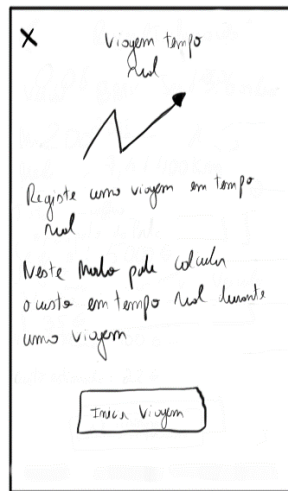 X
Viagem tempo
real
Registe uma viagem em tempo
real
Neste modo pode calcular
o custo em tempo real durante
uma viagem
Iniciar Viagem